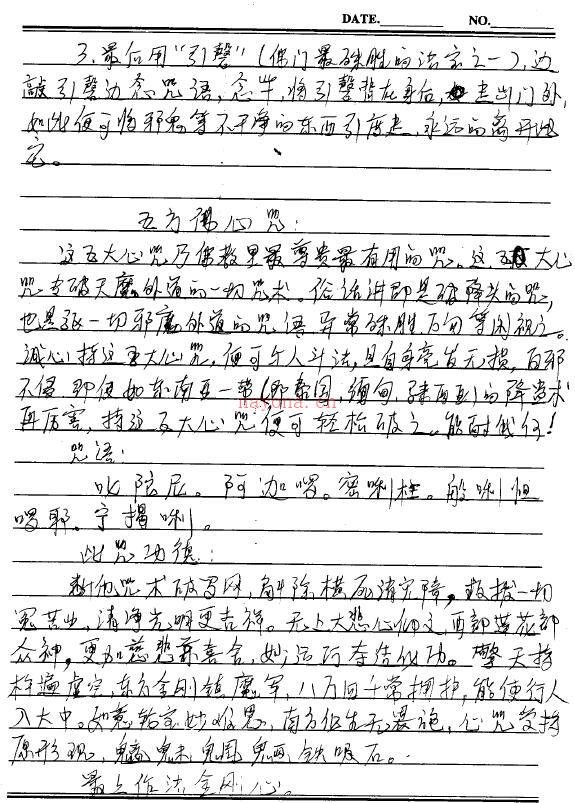 DATE.________ NO.________
3.最后用“引磬”(佛门最殊胜的法宝之一),边
敲引磬边念咒语,念毕,将引磬背在身后,走出门外,
如此便可将邪鬼等不干净的东西引度走,永远的离开此
宅。
五方佛心咒:
这五大心咒乃佛教里最尊贵最有用的咒。这五大心
咒专破天魔外道的一切咒术。俗话讲即是破降头的咒,
也是驱一切邪魔外道的咒语,异常殊胜,万勿等闲视之。
诚心持这五大心咒,便可与人斗法,且自身毫发无损,百邪
不侵,即使如东南亚一带(即泰国,缅甸,)的降头术
再厉害,持这五大心咒便可轻松破之。能耐我何!
nayona.cn
咒语:
叱陀尼。阿迦啰。密唎柱。般唎怛
啰耶。宁揭唎。
此咒功德:
断他咒术破罗网,解除横死消灾障,救拔一切
冤苦,清净光明更吉祥。无上大悲心,西部莲花部
众神,更加慈悲兼喜舍,妙法巧夺结化功。擎天持
柱遍虚空,东方金刚镇魔军,八万四千常拥护,能使行人
入大中。如意,南方,心咒受持
原形现,魑魅魍魉铁吸石。
最上作法金刚心。